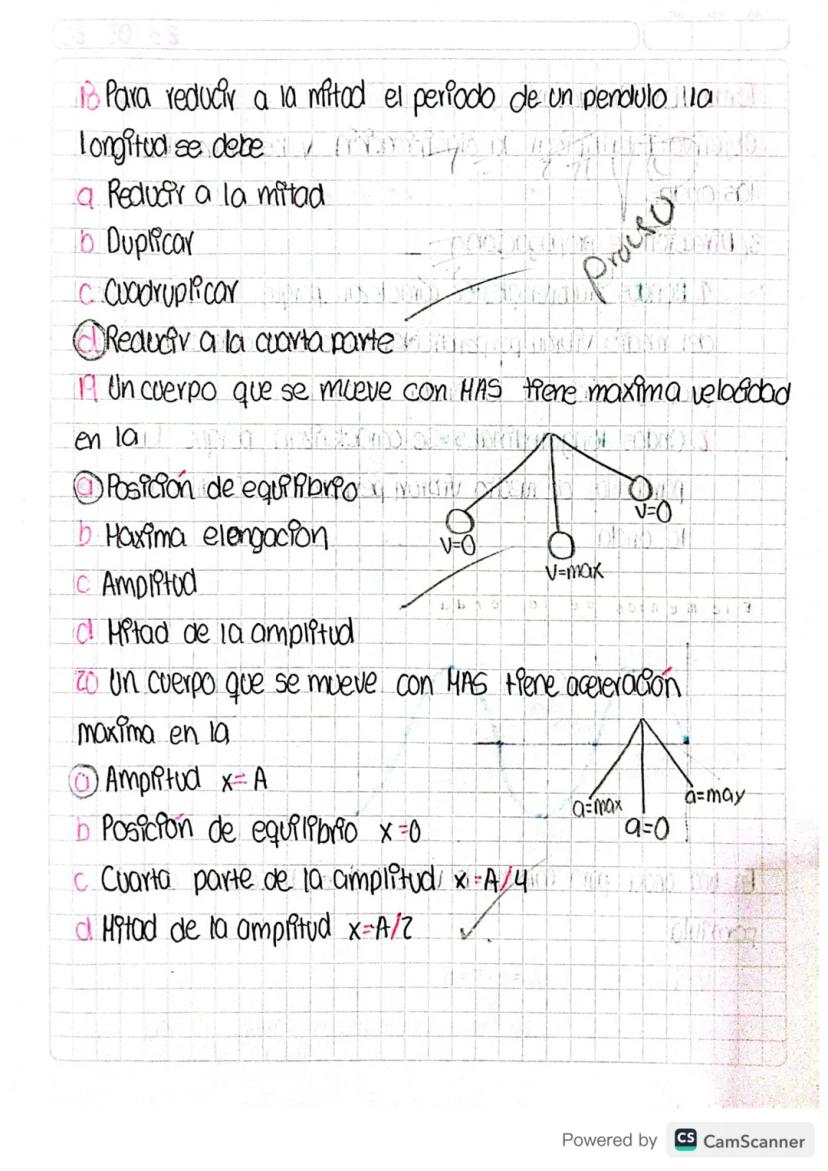 18 Para reducir a la mitad el periodo de un pendulo la
longitud se debe
a Reducir a la mitad
b Duplicar
proceso
c Cuadruplicar
d Reducir a la cuarta parte
19 Un cuerpo que se mueve con MAS tiene maxima velocidad
en la
a Posición de equilibrio
v=0
b Maxima elongacion
v=0
v=max
c Amplitud
d Mitad de la amplitud
20 Un cuerpo que se mueve con MAS tiene aceleración
maxima en la
a Amplitud x=A
a=max
a=may
b Posición de equilibrio x=0
a=0
c Cuarta parte de la amplitud x=A/4
d Mitad de la amplitud x=A/2
Powered by CS CamScanner